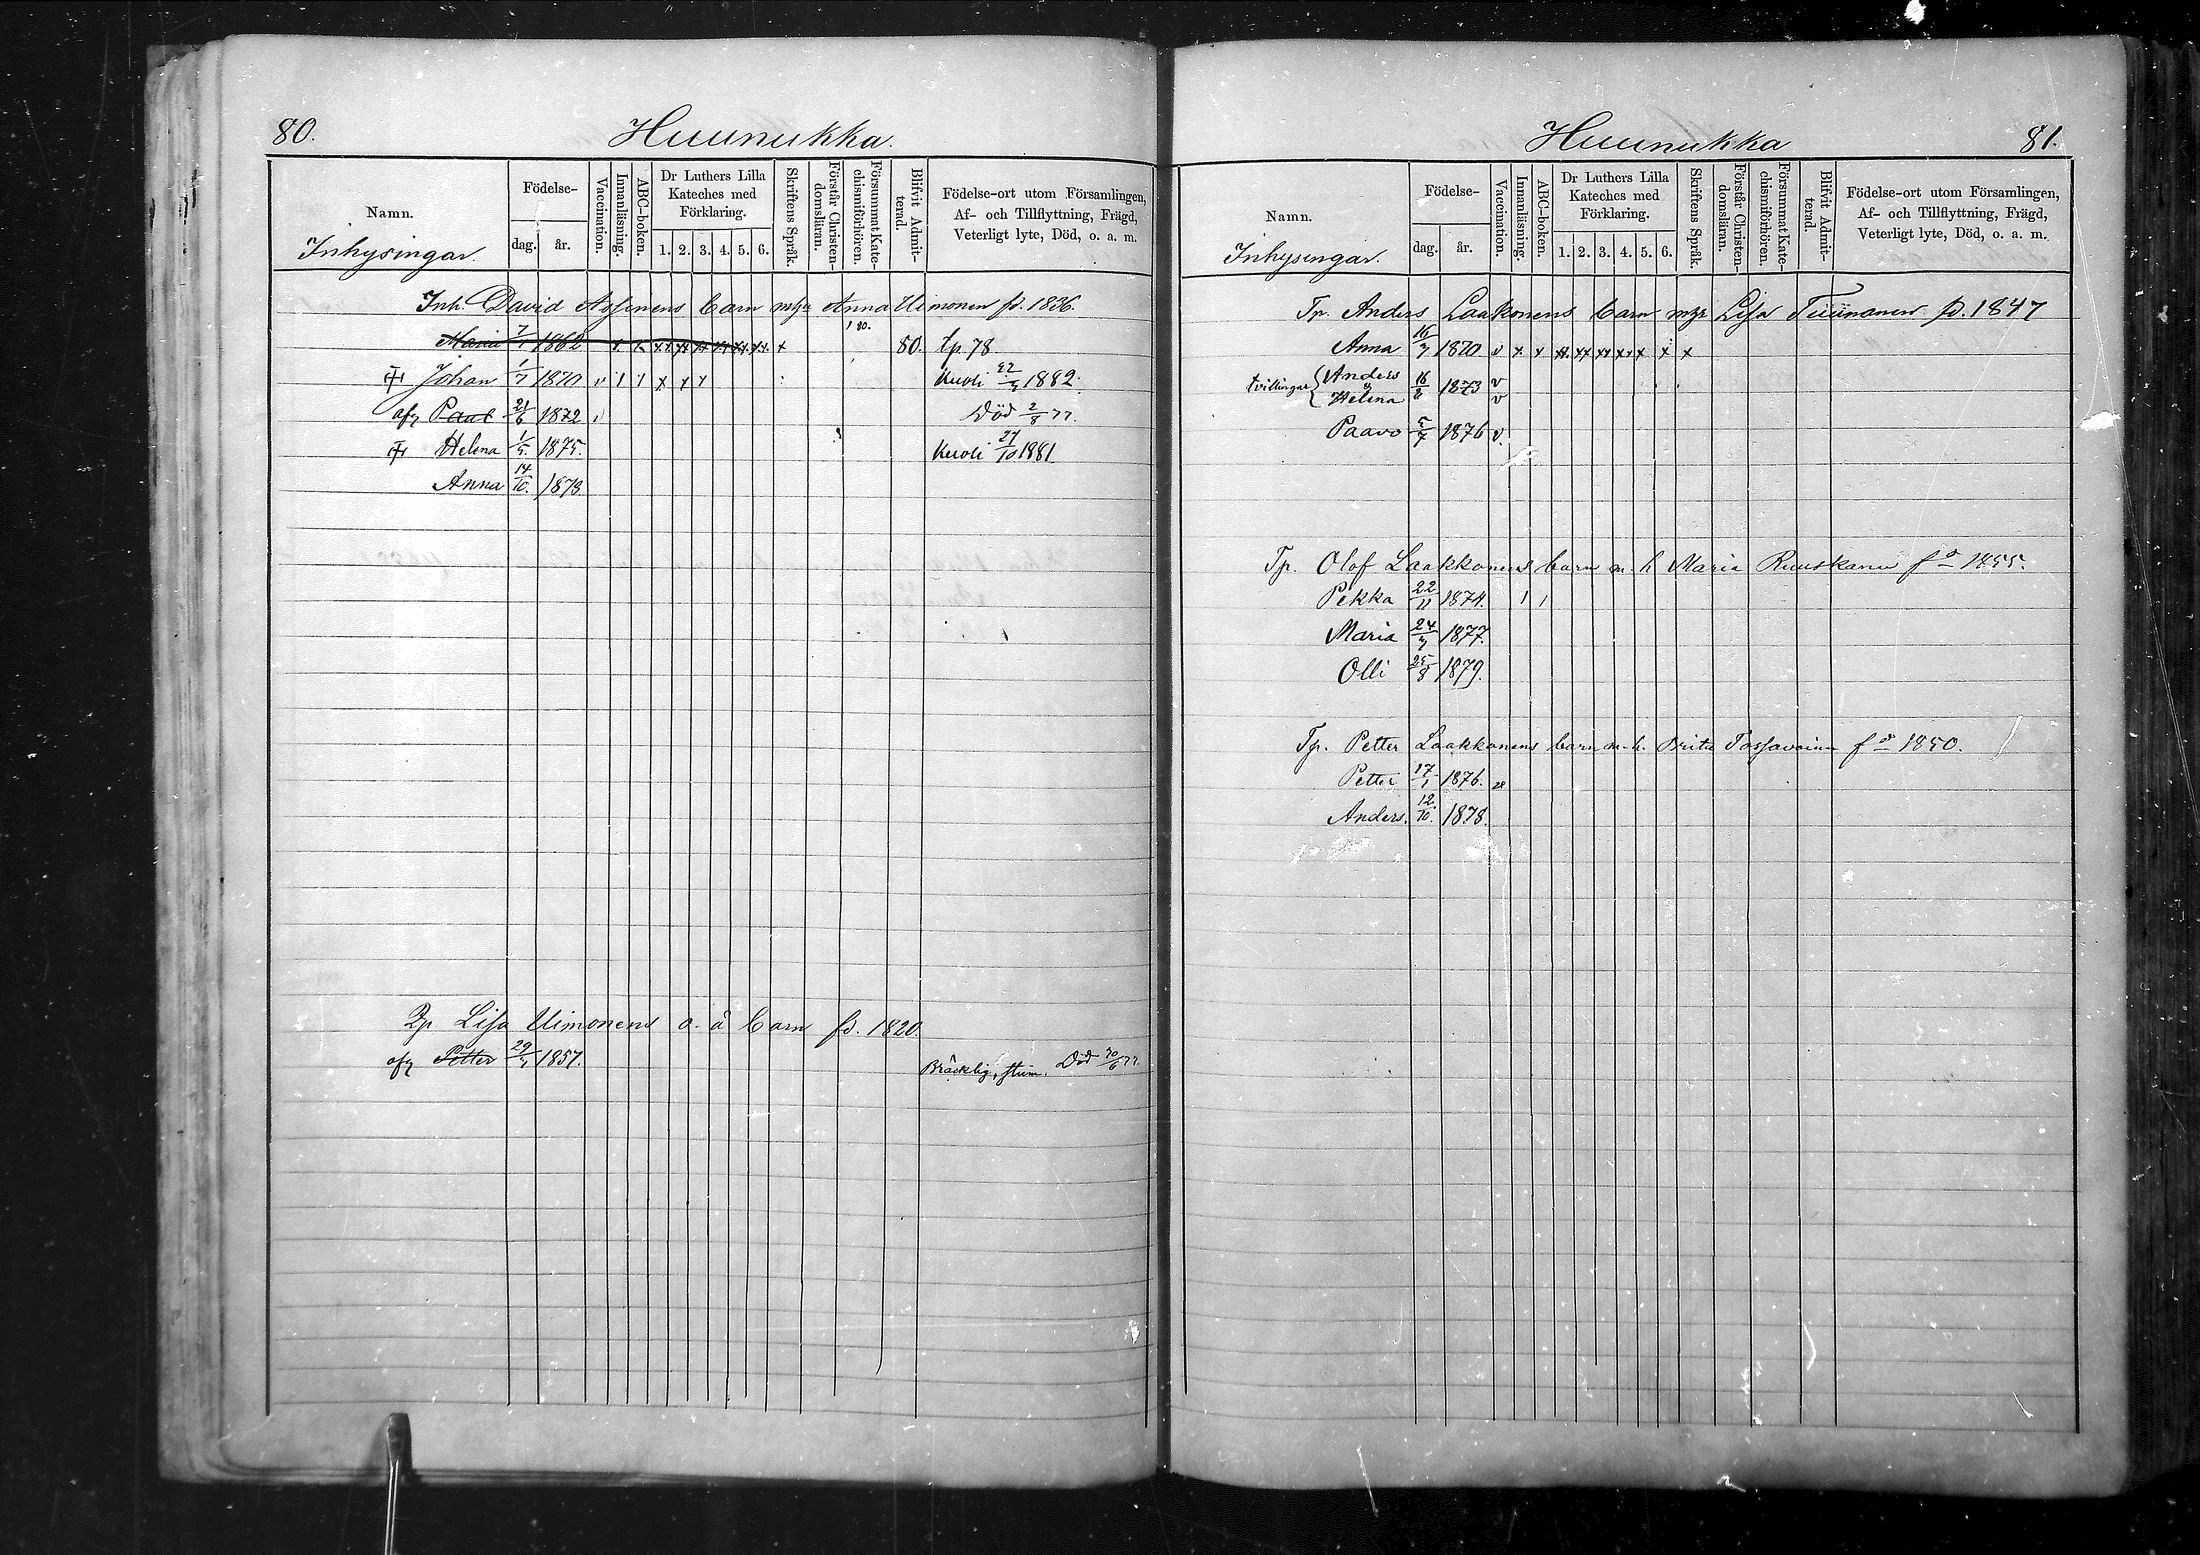 80. Huunukka.
Namn. Födelse- dag. år. Vaccination. Innanläsning. ABC-boken. Dr Luthers Lilla Kateches med Förklaring. 1. 2. 3. 4. 5. 6. Skriftens Språk. Förstår Christendomsläran. Försummat Katechismiförhören. Blifvit Admitterad. Födelse-ort utom Församlingen, Af- och Tillflyttning, Frägd, Veterligt lyte, Död, o. a. m.
Inhysingar.
Inh. David Assinens barn m hu Anna Uimonen fd. 1836.
Maria 7/1 1862 80. tp 78
Johan 1/7 1870 v Kuoli 1882.
afg Paul 21/6 1872 v Död 2/8 77.
Helena 1/5 1875. Kuoli 27/10 1881
Anna 14/10. 1878
Lisa Uimonens o. ä barn fd. 1820.
afg Petter 1857. Bräcklig, stum. Död /6 77.
Huunukka 81.
Namn. Födelse- dag. år. Vaccination. Innanläsning. ABC-boken. Dr Luthers Lilla Kateches med Förklaring. 1. 2. 3. 4. 5. 6. Skriftens Språk. Förstår Christendomsläran. Försummat Katechismiförhören. Blifvit Admitterad. Födelse-ort utom Församlingen, Af- och Tillflyttning, Frägd, Veterligt lyte, Död, o. a. m.
Inhysingar.
Tp. Anders Laakonens barn Lisa fd. 1847
Anna 1870 v x x
tvillingar { Anders & Helena 1873 v v
Paavo 1876 v.
Tp. Olof Laakkonens barn m. h Maria Ruuskanen fd 1855.
Pekka 22/11 1874.
Maria 1877.
Olli 25/8 1879.
Tp. Petter Laakkonens barn m. h. Brita Tossavainen fd 1850.
Petter 17/1 1876. v
Anders. 12/10. 1878.